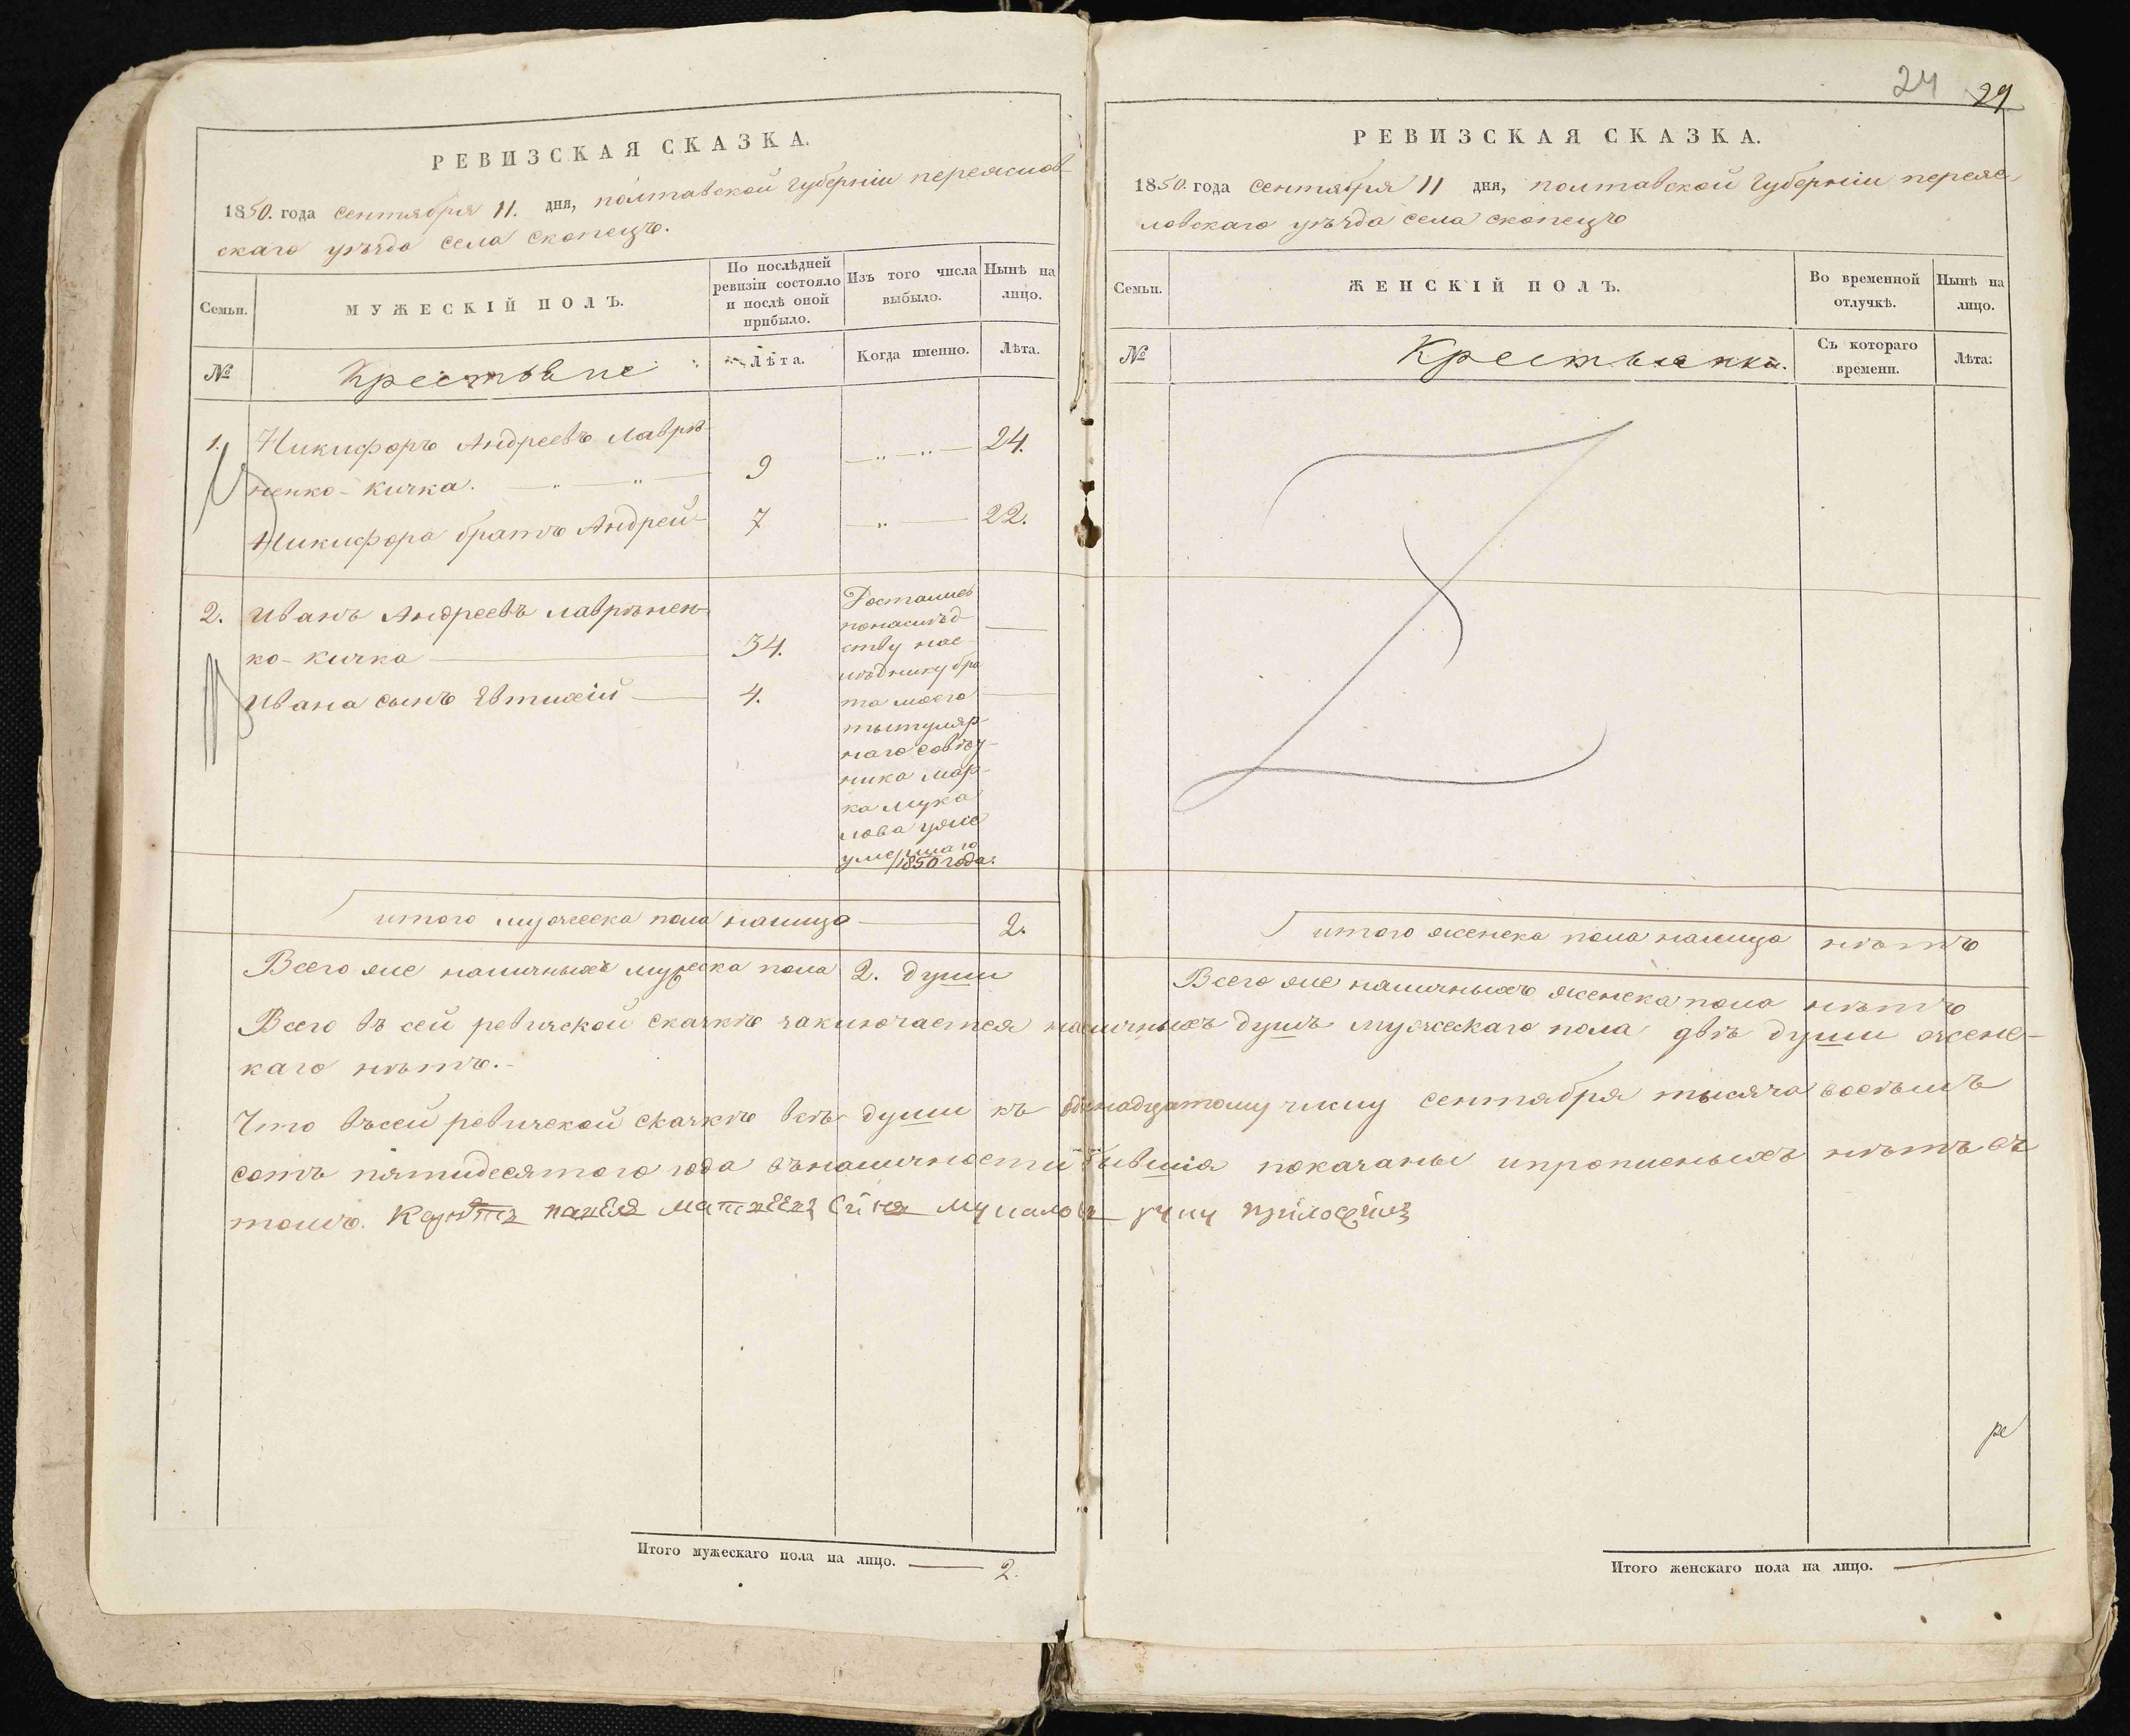 РЕВИЗСКАЯ СКАЗКА.
1850. года сентября 11. дня, полтавской губерніи переяслов-
скаго уѣзда села скопецъ.
Семьи.
МУЖЕСКІЙ ПОЛЪ.
По послѣдней ревизіи состояло и послѣ оной прибыло.
Изъ того числа выбыло.
Нынѣ на лицо.
№
Крестьяне
Лѣта.
Когда именно.
Лѣта.
1. Никифоръ Андреевъ Лаврѣ-
ненко-Кичка. 9 24.
Никифора братъ Андрей 7 22.
2. Иванъ Андреевъ лаврѣнен-
ко-Кичка 34.
Ивана сынъ Евтихій 4.
Достались
понаслѣд-
ству нас-
лѣднику бра
та моего
титуляр-
наго совѣт-
ника Мар-
ка Мука
лова уже
умершаго
1850 года.
итого мужеска пола налицо 2.
Всего же наличныхъ мужеска пола 2. души
24 29
РЕВИЗСКАЯ СКАЗКА.
1850. года сентября 11 дня, полтавской губерніи переяс-
ловскаго уѣзда села скопецъ
Семьи.
ЖЕНСКІЙ ПОЛЪ.
Во временной отлучкѣ.
Нынѣ на лицо.
№
Крестьянки.
Съ котораго времени.
Лѣта.
итого женска пола налицо нѣтъ
Всего же наличныхъ женска пола нѣтъ
Всего въ сей ревизской сказкѣ заключается наличныхъ душъ мужескаго пола двѣ души женс-
каго нѣтъ.-
Что въсей ревизской сказкѣ всѣ души къ одинадцатому числу сентября тысяча восемъ
сотъ пятидесятого года вналичности бывшія показаны ипрописныхъ нѣтъ въ
томъ. павел сынъ Мукалов руку приложилъ
Итого мужескаго пола на лицо. 2.
Итого женскаго пола на лицо.